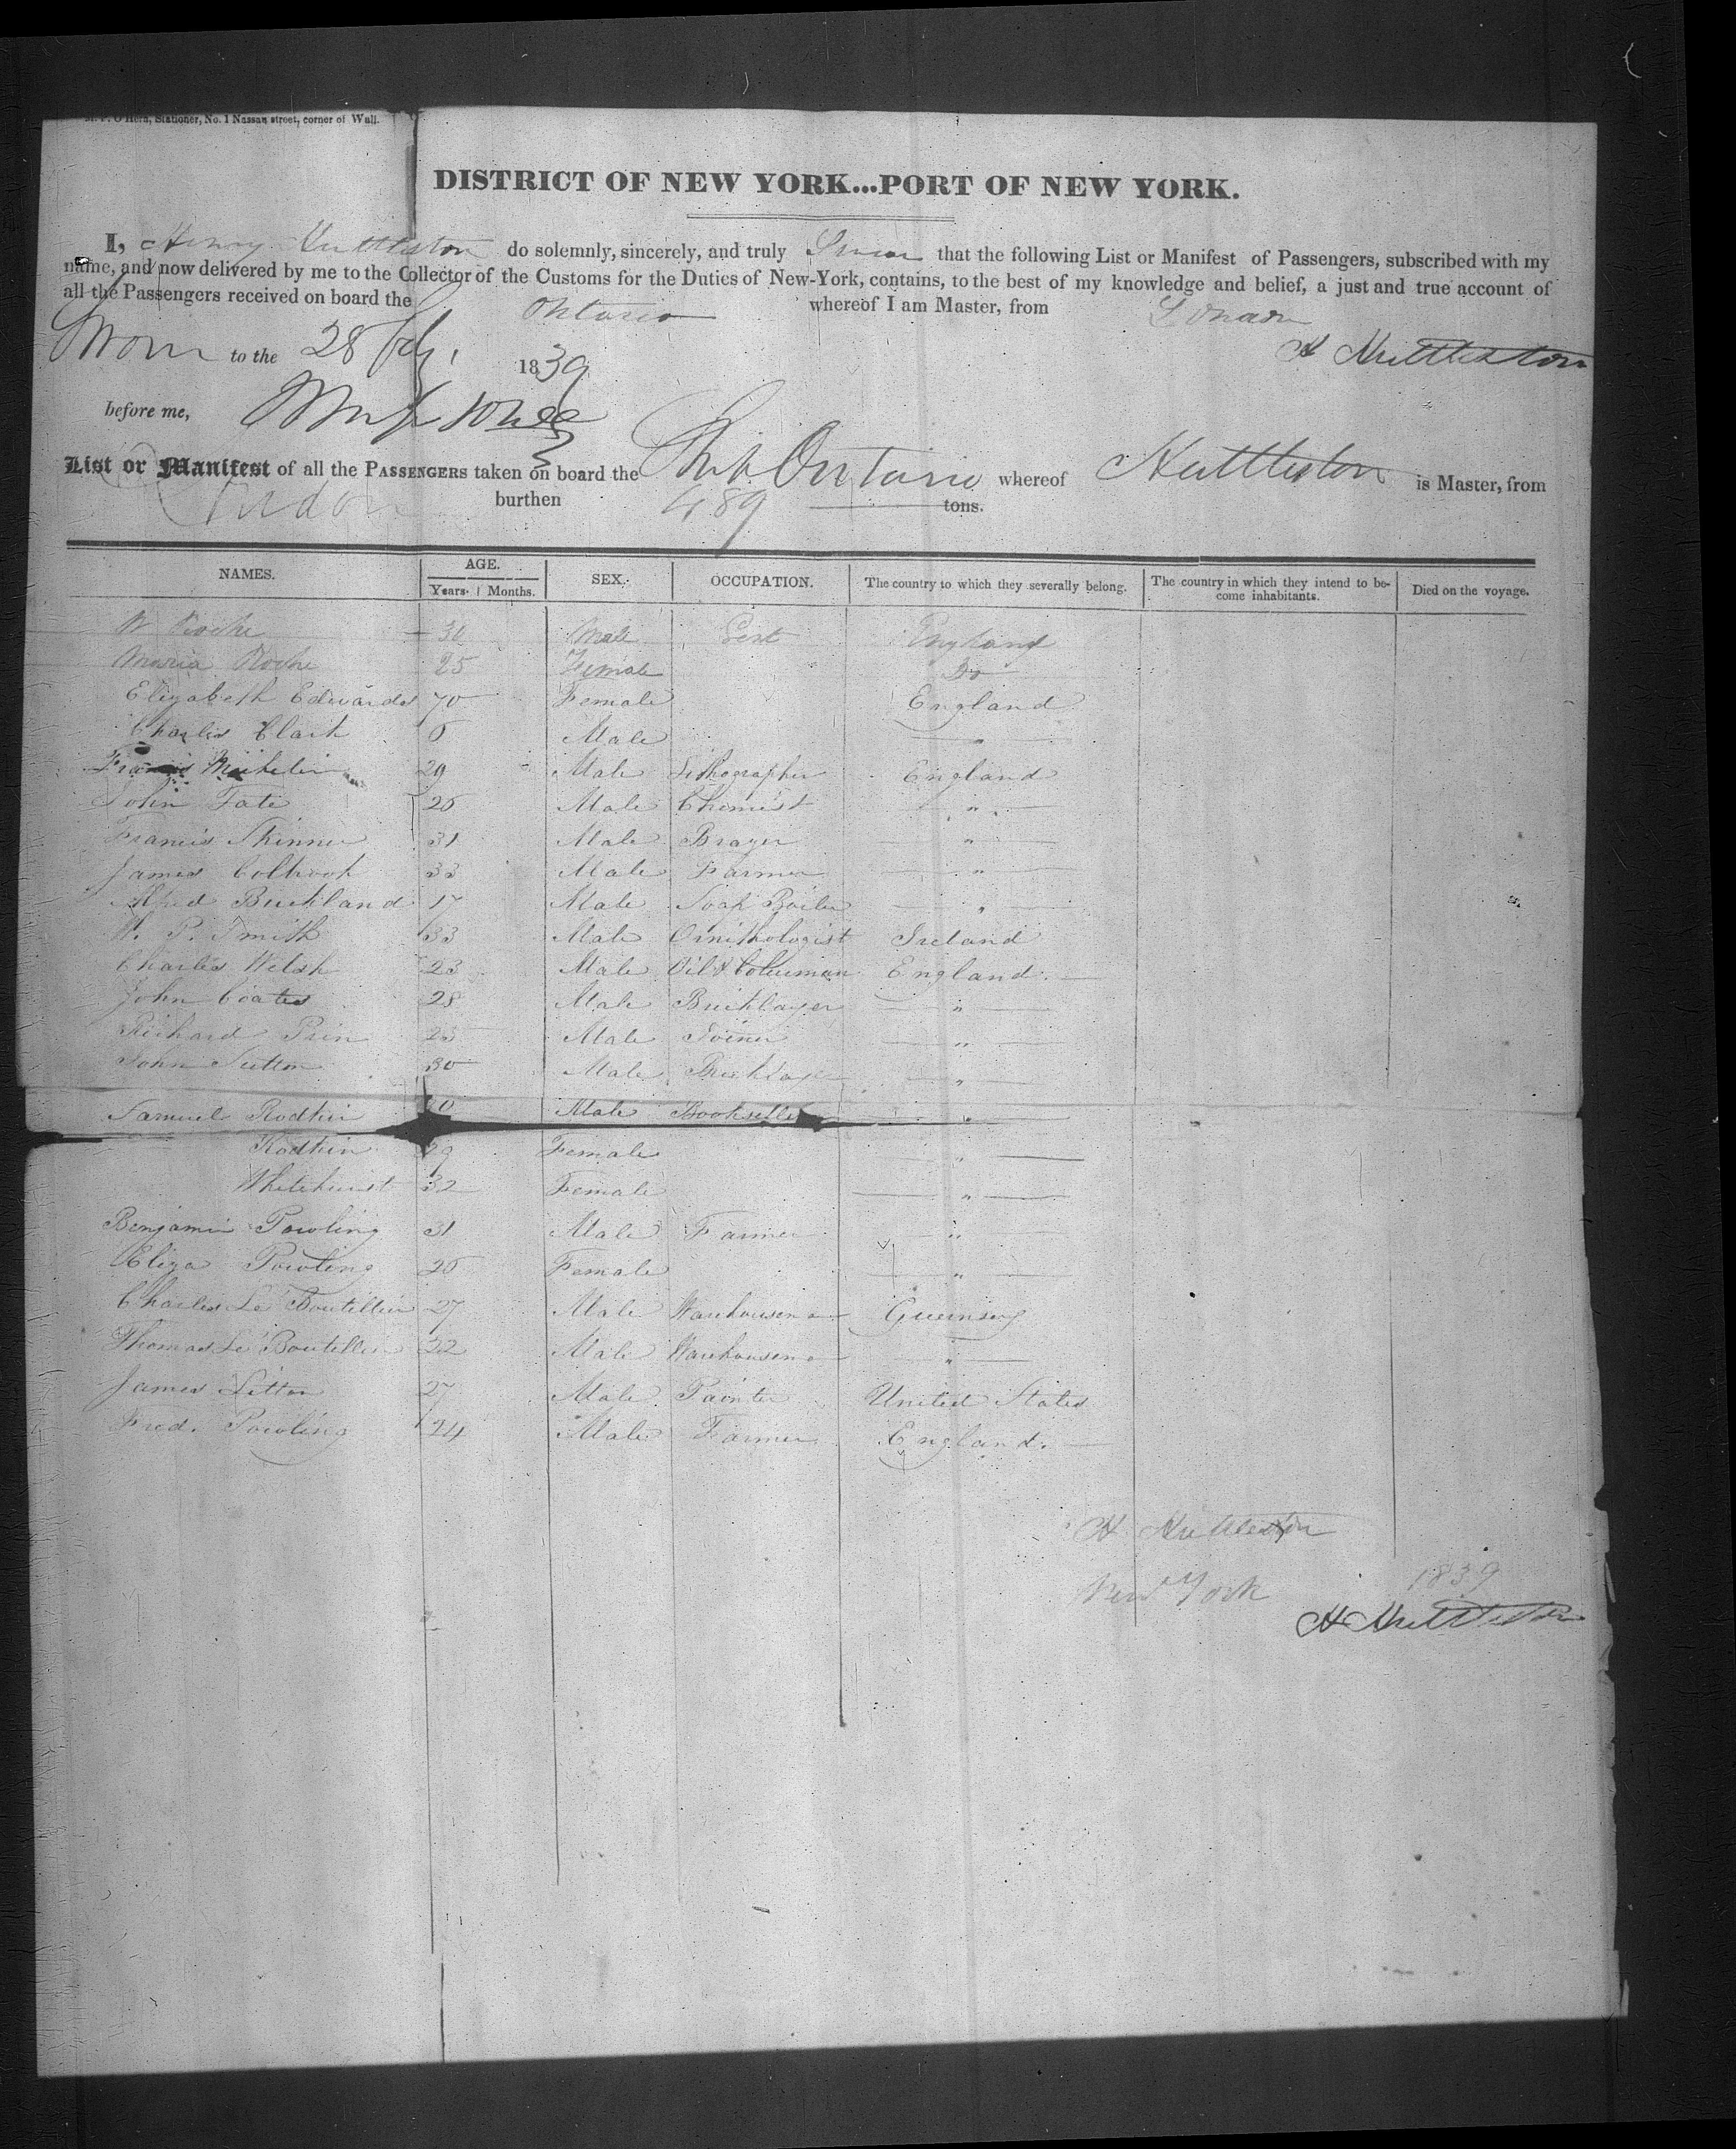 O'Hern, Stationer, No. 1 Nassau street, corner of Wall.
DISTRICT OF NEW YORK...PORT OF NEW YORK.
I, Henry Huttleston do solemnly, sincerely, and truly Swear that the following List or Manifest of Passengers, subscribed with my
name, and now delivered by me to the Collector of the Customs for the Duties of New-York, contains, to the best of my knowledge and belief, a just and true account of
all the Passengers received on board the Ontario whereof I am Master, from London
Sworn to the 28 Feby 1839 H Huttleston
before me,
List or Manifest of all the PASSENGERS taken on board the Ship Ontario whereof Huttleston is Master, from
London burthen 489 tons.
NAMES. AGE. SEX. OCCUPATION. The country to which they severally belong. The country in which they intend to become inhabitants. Died on the voyage.
Years. Months.
W Roche 30 Male Gent England
Maria Roche 25 Female Do
Elizabeth Edwards 70 Female England
Charles Clark 6 Male "
Francis Michelin 29 Male Lithographer England
John Tate 26 Male Chemist "
Francis Skinner 31 Male Brazier "
James Colbrook 33 Male Farmer "
Alfred Buckland 17 Male Soap Boiler "
W. P. Smith 33 Male Ornithologist Ireland
Charles Welsh 23 Male Oil & Colourman England.
John Coates 28 Male Bricklayer "
Richard Prin 23 Male Joiner "
John Sutton 30 Male Bricklayer "
Samuel Rodkin Male Bookseller "
Rodkin 29 Female "
Whitehurst 32 Female "
Benjamin Powling 31 Male Farmer "
Eliza Powling 26 Female "
Charles Le Boutillier 27 Male Warehouseman Guernsey
Thomas Le Boutillier 22 Male Warehouseman "
James Litton 27 Male Painter United States
Fred. Powling 24 Male Farmer England.
H Huttleston
New York 1839
H Huttleston